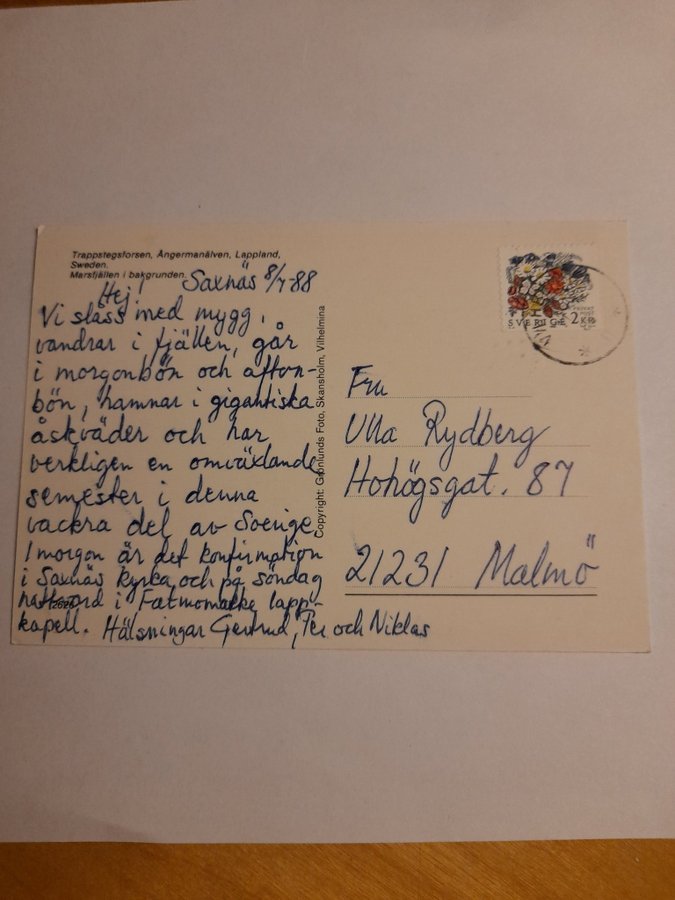 Trappstegsforsen, Ångermanälven, Lappland,
Sweden.
Marsfjällen i bakgrunden.
Saxnäs 8/7-88
Hej!
Vi slåss med mygg,
vandrar i fjällen, går
i morgonbön och afton-
bön, hamnar i gigantiska
åskväder och har
verkligen en omväxlande
semester i denna
vackra del av Sverige
I morgon är det konfirmation
i Saxnäs kyrka och på söndag
nattvard i Fatmomakke lapp-
kapell. Hälsningar Gertrud, Per och Niklas
Copyright: Grönlunds Foto, Skansholm, Vilhelmina
PRIVAT
POST
SVERIGE 2 KR
Fru
Ulla Rydberg
Hohögsgat. 87
21231 Malmö